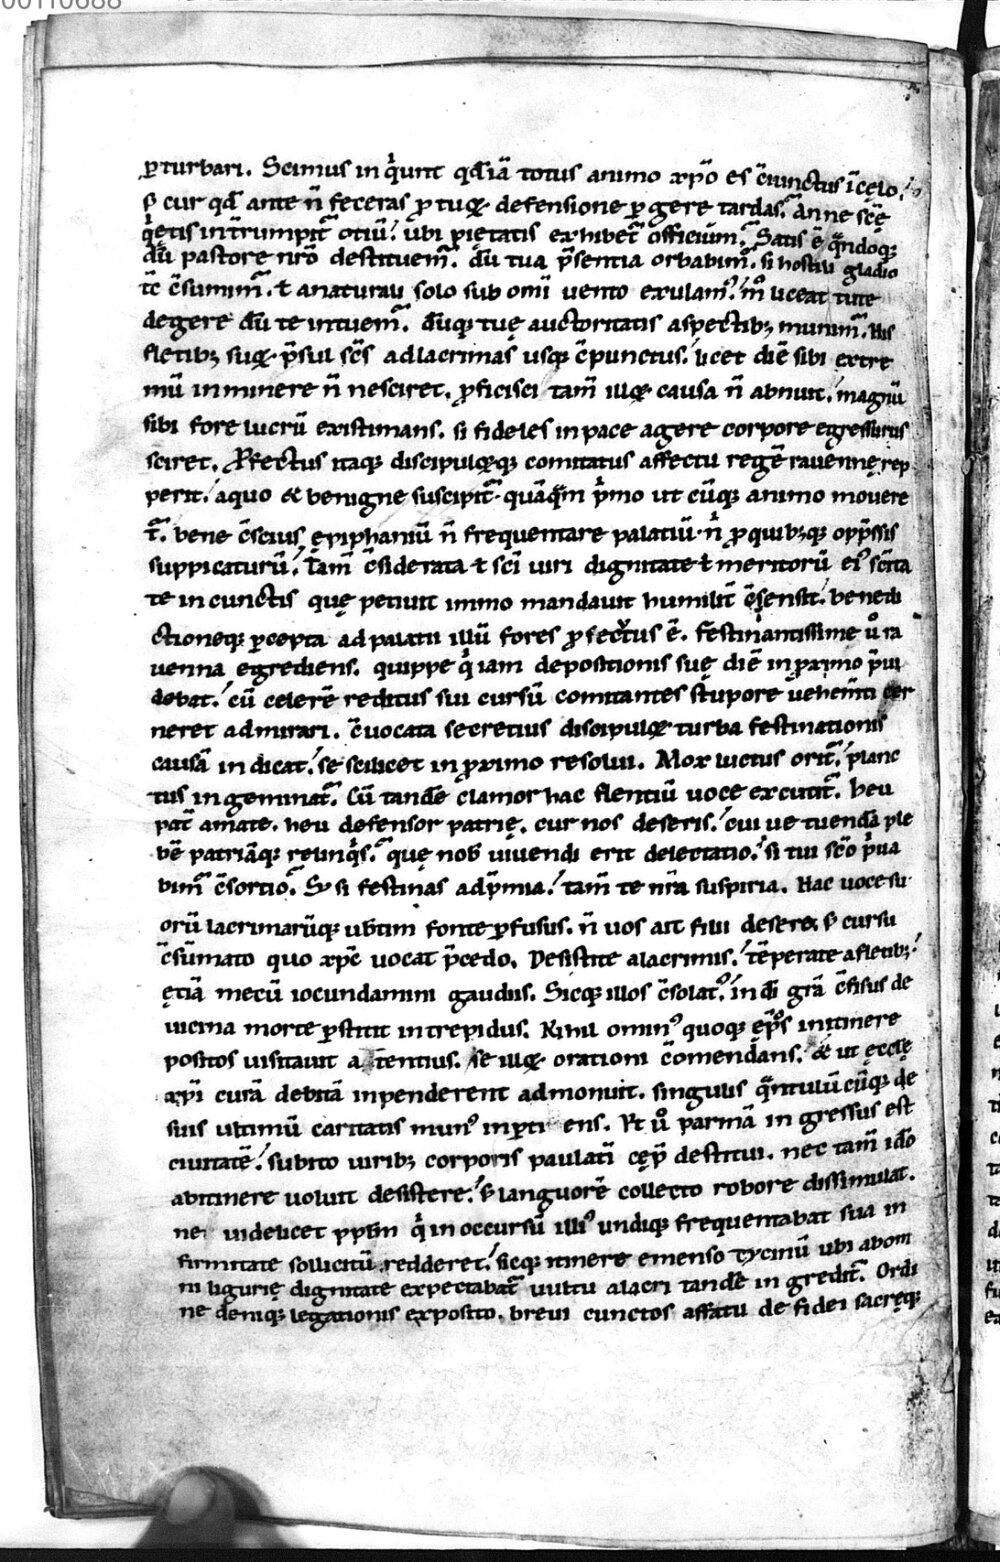 00110688
ꝑturbari. Scimus in q̇runt qđ iā totus animo xp̄o es c̄iunctus ī cęlo.
s; cur qđ ante n̄ feceras ꝓ tuoꝝ defensione ꝑgere tardas. Anne sc̄ę
q̇etis int̄rumpit᷑ otiū? ubi pietatis exhibet᷑ officium. Satis ē q̄ndoq;
dū pastore nr̄o destituem᷑. dū tua p̄sentia orbabim᷑. si hostili gladio
tc̄ c̄sumim᷑. ⁊ a naturali solo sub om̄i uento exulam᷑. m̊ liceat tute
degere dū te intuem᷑. dūq; tuę auctoritatis aspectib; munim᷑. His
fletib; suoꝝ p̄sul sc̄s ad lacrimas usq; c̄punctus. licet diē sibi extre
mū inminere n̄ nesciret. ꝓficisci tam̄ illoꝝ causa n̄ abnuit. magnū
sibi fore lucrū existimans. si fideles in pace agere corpore egressurus
sciret. Profectus itaq; discipuloꝝq; comitatus affectu regē rauennę rep
perit. a quo & benigne suscipit᷑. quāq̄m p̄mo ut cūq; animo mouere
t᷑. bene c̄scius epiphaniū n̄ frequentare palatiū. n̄ ꝓ quib;q; opp̄ssis
supplicaturū. Tam̄ c̄siderata ⁊ sc̄i uiri dignitate ⁊ meritorū ei᷒ sc̄ita
te in cunctis que petiuit immo mandauit humilit̄ c̄sensit. benedi
ctioneq; ꝑcepta ad palatii illū fores ꝓsecutus ē. Festinantissime ů ra
uenna egrediens. quippe q̇ iam depositionis suę diē in ꝓximo p̄ui
debat. cū celerē reditus sui cursū comitantes stupore uehem̄ti cer
neret admirari. c̄uocata secretius discipuloꝝ turba festinationis
causā indicat. se scilicet in ꝓximo resolui. Mox luctus orit᷑. planc
tus ingeminat᷑. Cū tandē clamor hac flentiū uoce excutit᷑. heu
pat̄ amate. heu defensor patrię. cur nos deseris. cui ue tuendā ple
bē patriāq; relinq̇s. quę nob̄ uiuendi erit delectatio. si tui sc̄o ṗua
bim᷑ c̄sortio. S; si festinas ad p̄mia. tam̄ te nr̄a suspiria. Hac uoce su
orū lacrimarūq; ub̄tim fonte ꝑfusus. n̄ uos ait filii desero. s; cursu
c̄sūmato quo xp̄c uocat p̄cedo. Desistite a lacrimis. tēperate a fletib;.
etiā mecū iocundamini gaudiis. Sicq; illos c̄solat᷒. in dī gr̄a c̄fisus de
uicina morte ꝑstitit intrepidus. Nihil omin᷒ quoq; ep̄os in itinere
positos uisitauit attentius. se illoꝝ orationi c̄omendans. & ut ęcclę
xp̄i curā debitā inpenderent admonuit. singulis q̄ntulūcūq; de
suis ultimū caritatis mun᷒ inꝑtiens. Ut ů parmā ingressus est
ciuitatē. subito uirib; corporis paulati cęp̄ destitui. nec tam̄ idō
ab itinere uoluit desistere. s; languorē collecto robore dissimulat.
ne uidelicet pp̄lm q̇ in occursū illi᷒ undiq; frequentabat sua in
firmitate sollicitū redderet. sicq; itinere emenso tycinū ubi ab om
ni ligurię dignitate expectabat᷑ uultu alacri tandē ingredit᷑. Ordi
ne deniq; legationis exposito. breui cunctos affatu de fidei sacręq;